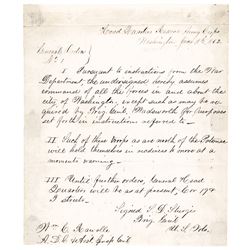 Head Quarters Reserve Army Corps
Washington
General Order
No 1
I. Pursuant to instructions from the War
Department, the undersigned hereby assumes
command of all the forces in and about the
city of Washington, except such as may be re
quired by Brig Genl Wadsworth for purposes
set forth in instructions referred to.
II Such of these troops as are north of the Potomac
will hold themselves in readiness to move at a
moments warning.
III Until further orders, General Head
Quarters will be as at present, Cor 19th
I streets.
Signed S. D. Sturgis
Brig Genl
U. S. Vols.
Wm C.
A. D. C. & Asst